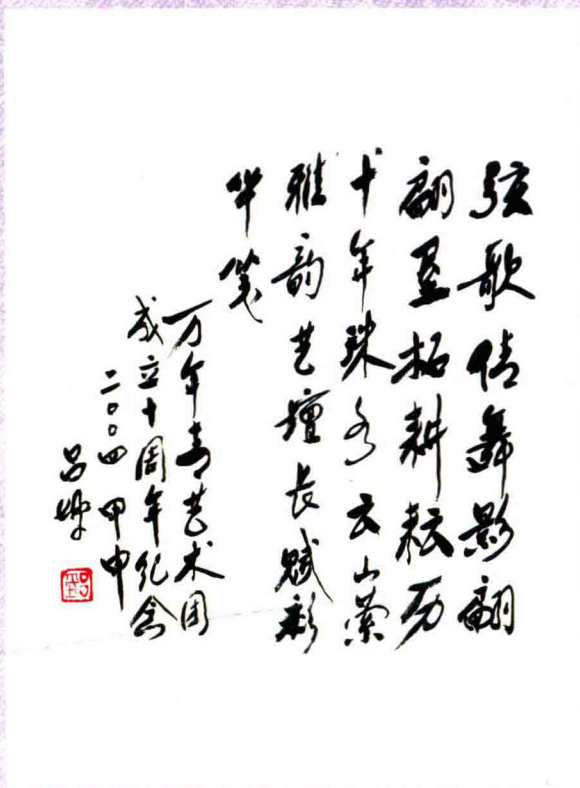 弦歌倩舞影翩
翩垦拓耕耘历
十年珠水云山萦
雅韵艺壇长赋彩
华笺
万年青艺术团
成立十周年纪念
二〇〇四 甲申
吕